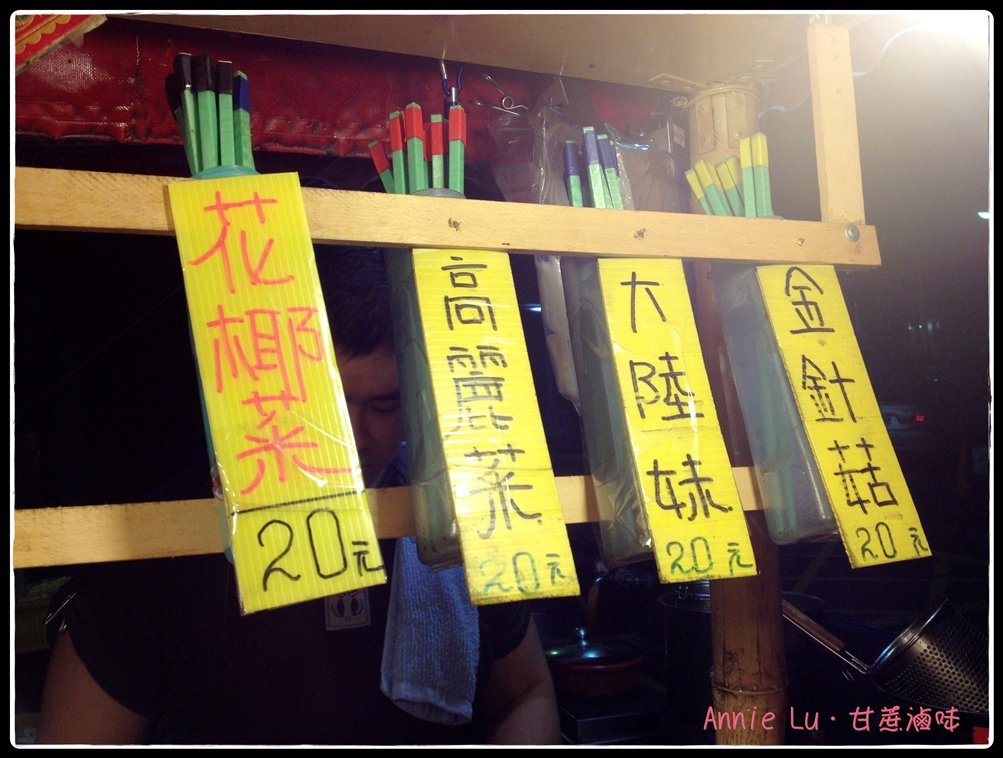 花椰菜
20元
高麗菜
20元
大陸妹
20元
金針菇
20元
Annie Lu · 甘蔗滷味